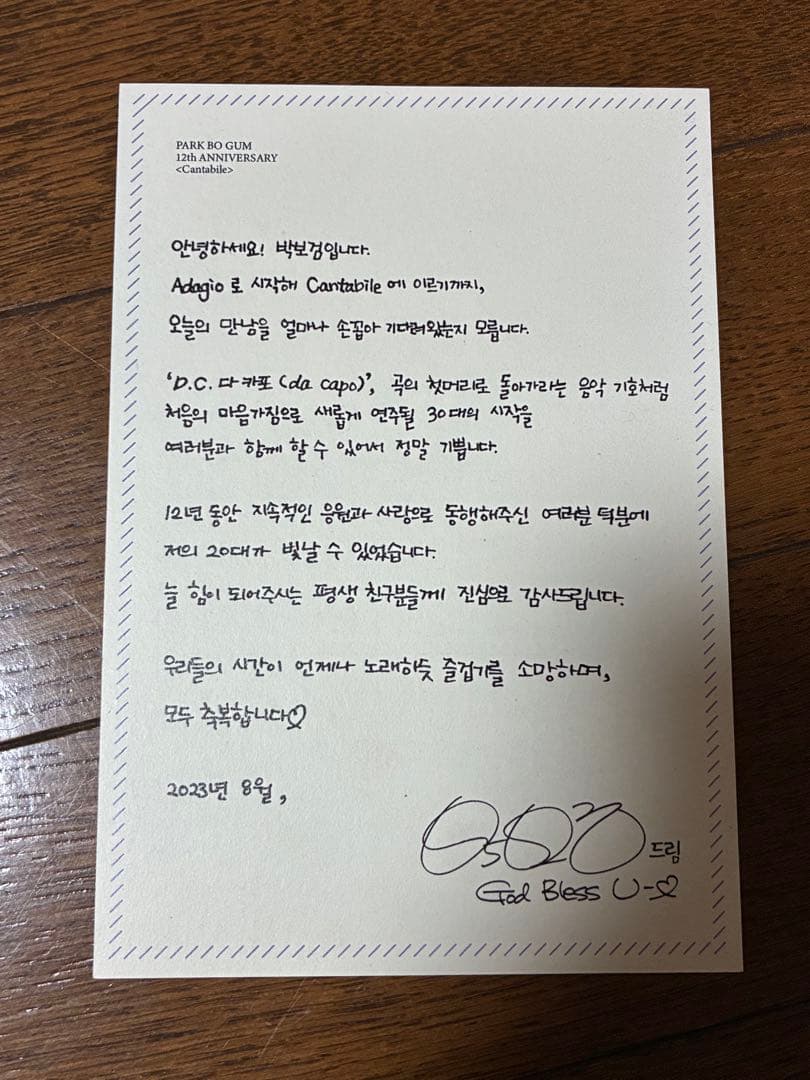 PARK BO GUM
12th ANNIVERSARY
<Cantabile>
안녕하세요! 박보검입니다.
Adagio로 시작해 Cantabile에 이르기까지,
오늘의 만남을 얼마나 손꼽아 기다려왔는지 모릅니다.
'D.C. 다카포 (da capo)', 곡의 첫머리로 돌아가라는 음악 기호처럼
처음의 마음가짐으로 새롭게 연주될 30대의 시작을
여러분과 함께 할 수 있어서 정말 기쁩니다.
12년 동안 지속적인 응원과 사랑으로 동행해주신 여러분 덕분에
저의 20대가 빛날 수 있었습니다.
늘 힘이 되어주시는 평생 친구분들께 진심으로 감사드립니다.
우리들의 시간이 언제나 노래하듯 즐겁기를 소망하며,
모두 축복합니다♡
2023년 8월,
드림
God Bless U-♡